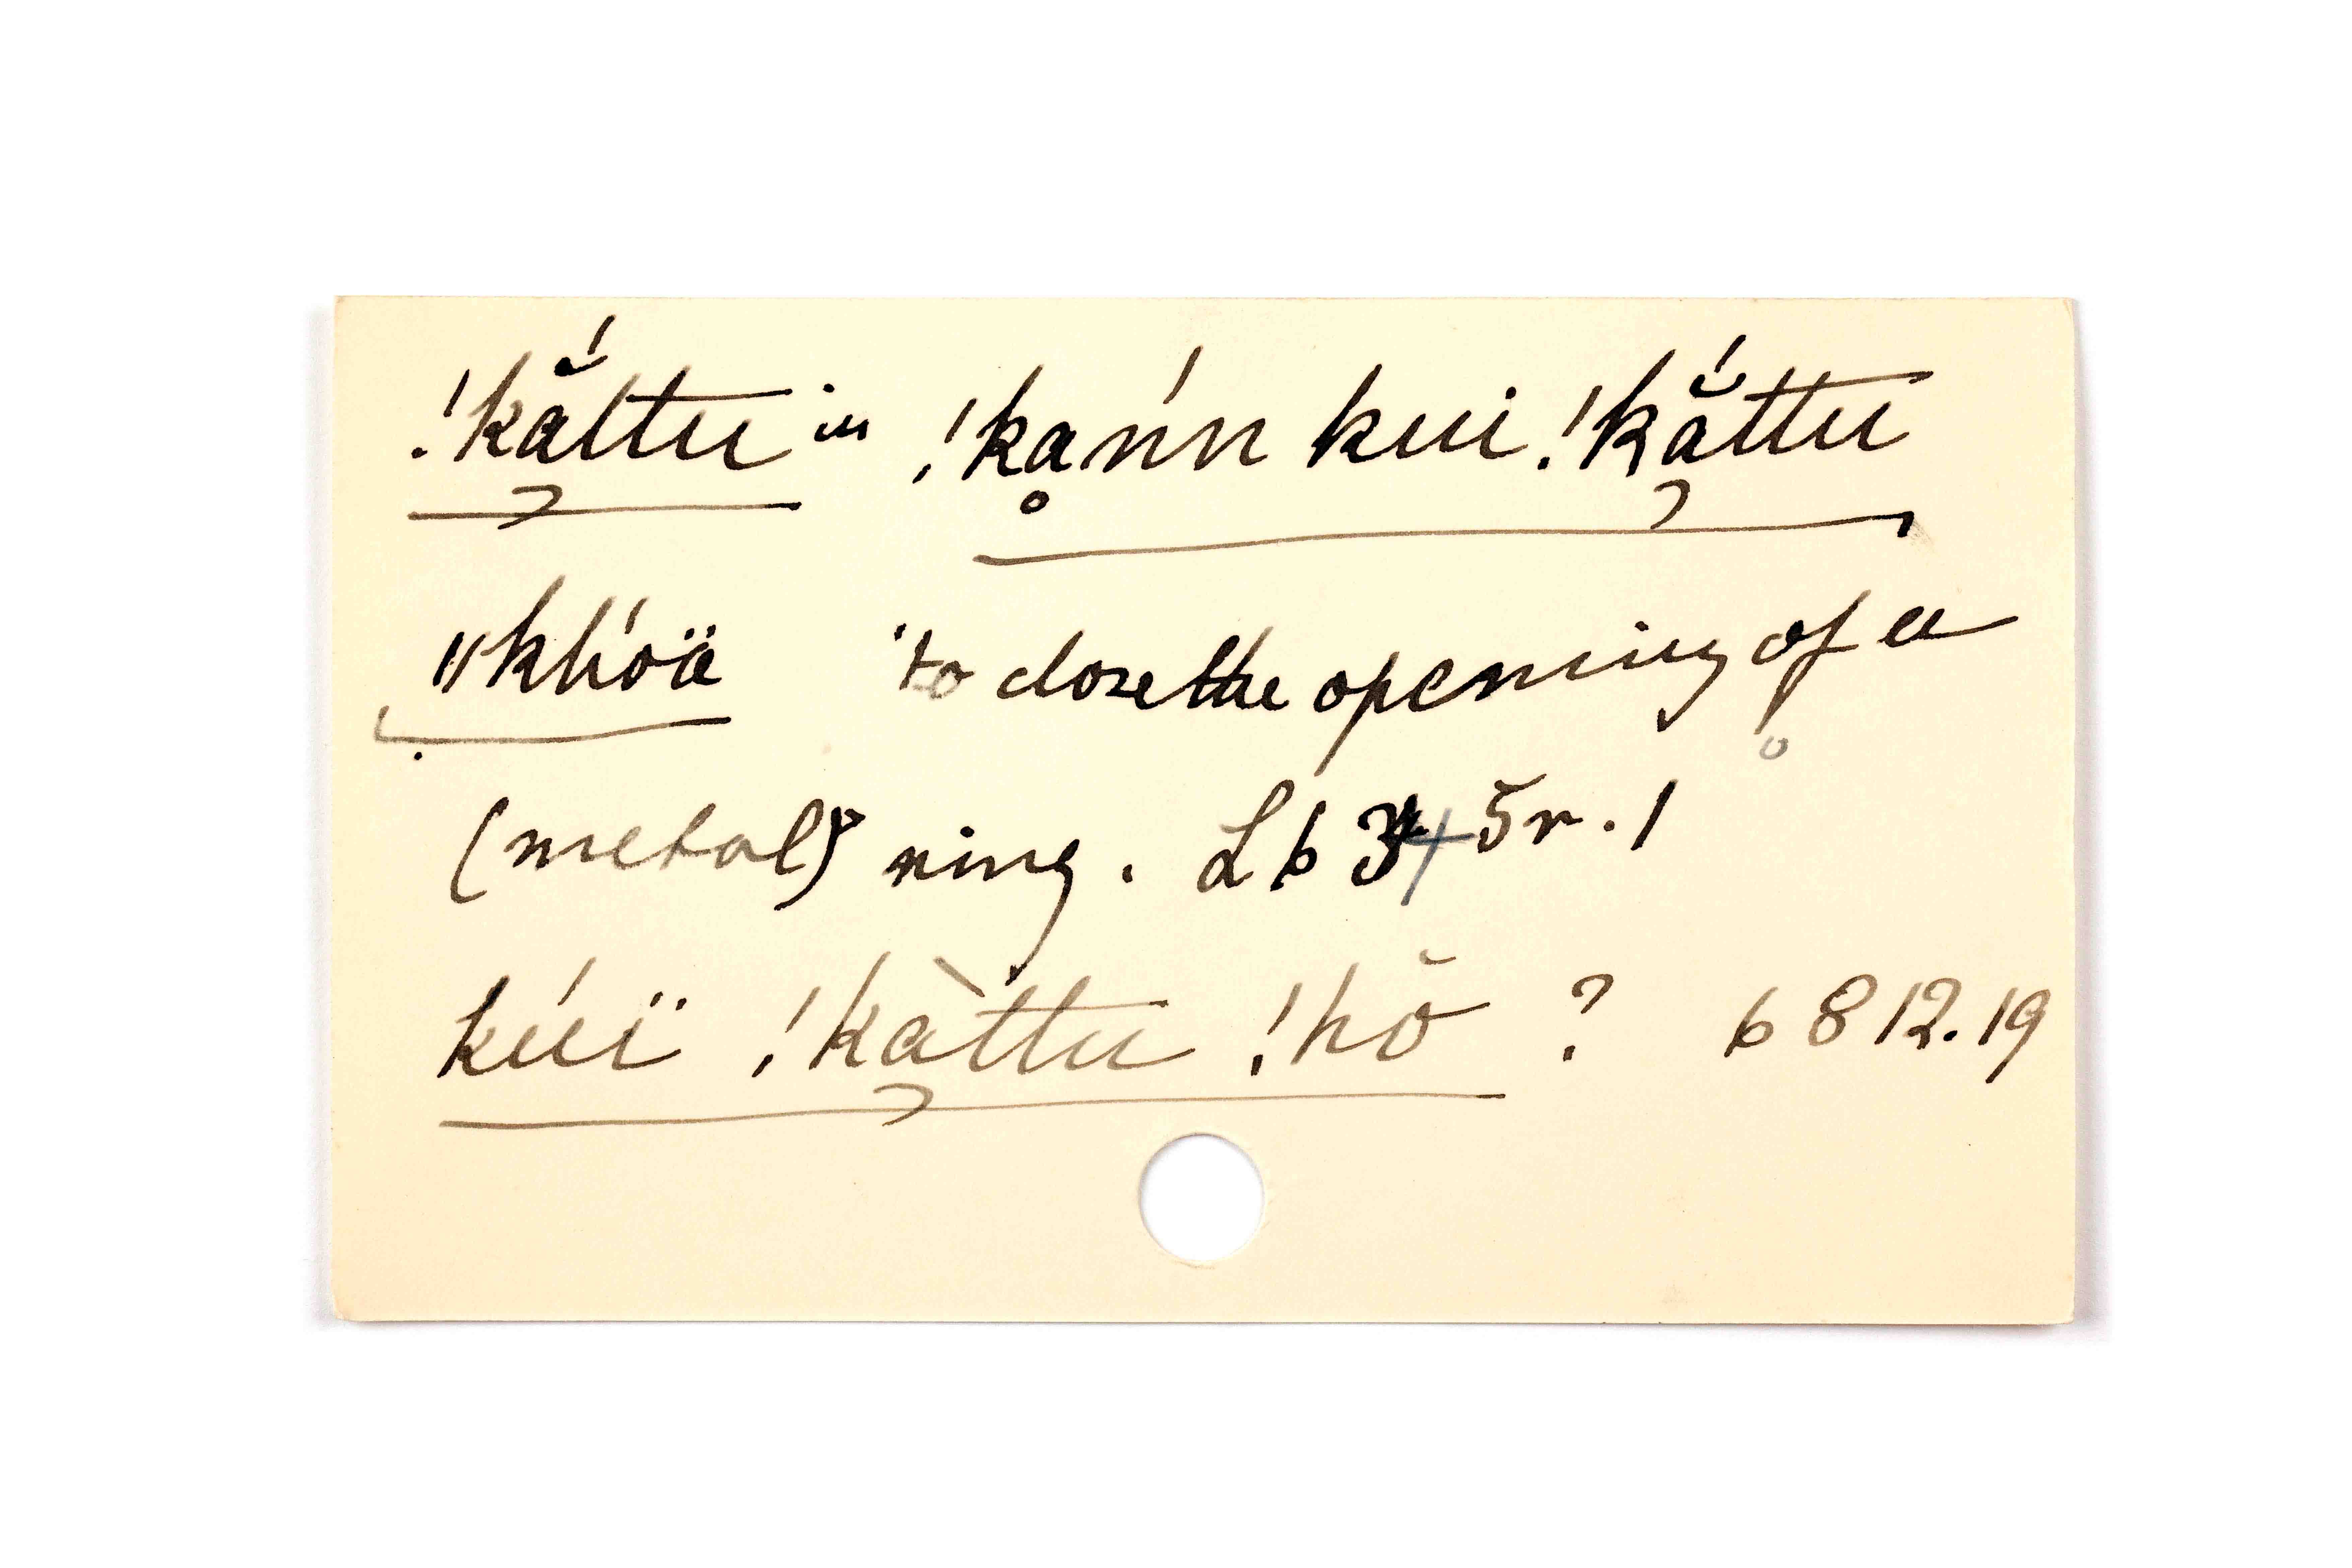 !kắttu in !kḁńn kui !kắttu
ǁkhóä to close the opening of a
(metal) ring. L b 34 5r. 1
kúï !kàttu !hŏ ? b 8 12.19